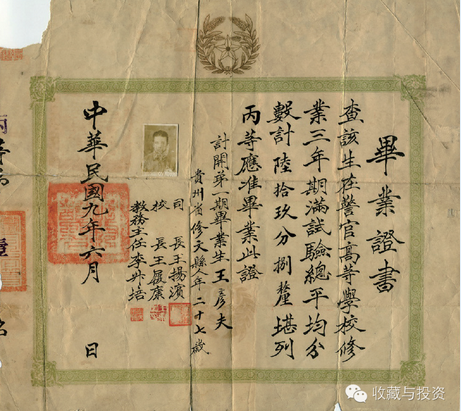 畢業證書
查該生在警官高等學校修
業三年期滿試驗總平均分
數計陸拾玖分捌釐堪列
丙等應准畢業此證
計開第一期畢業生王彥夫
貴州省修文縣人年二十七歲
司長王揚濱
校長王履康
教務主任李兴培
中華民國九年六月 日
收藏与投资